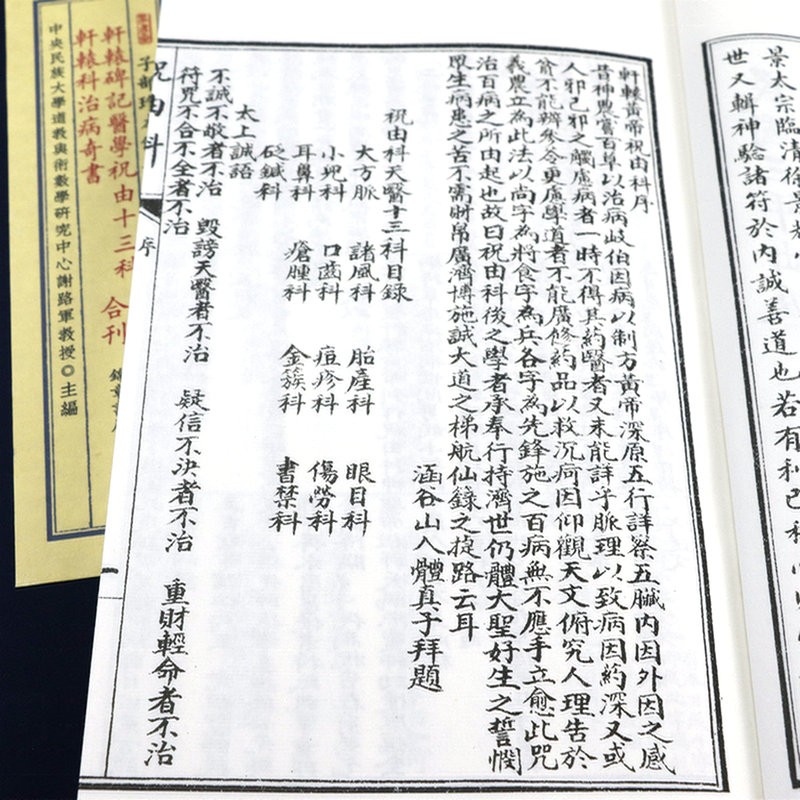 軒轅碑記醫學祝由十三科 合刊
軒轅科治病奇書
中央民族大學道教與術數學研究中心謝路軍教授◎主編
景太宗臨清徐景
世又輯神驗諸符於內誠善道也若有利己
軒轅黃帝祝由科序
昔神農嘗百草以治病岐伯因病以制方黃帝深原五行詳察五臟內因外因之感
人邪己邪之觸慮病者一時不得其藥醫者又未能詳于脈理以致病因藥深又或
貧不能辦參令更慮學道者不能廣修藥品以救沉疴因仰觀天文俯究人理告於
義農立為此法以尚字為將食字為兵各字為先鋒施之百病無不應手立愈此咒
治百病之所由起也故曰祝由科後之學者承奉行持濟世仍體大聖好生之誓憫
眾生病患之苦不需財帛廣濟博施誠大道之梯航仙錄之捷路云耳
涵谷山人體真子拜題
祝由科天醫十三科目錄
大方脈 諸風科 胎產科 眼目科
小兒科 口齒科 痘疹科 傷勞科
耳鼻科 瘡腫科 金簇科 書禁科
砭鍼科
太上誠語
不誠不敬者不治 毀謗天醫者不治 疑信不決者不治 重財輕命者不治
符咒不合不全者不治
祝由科
序
一